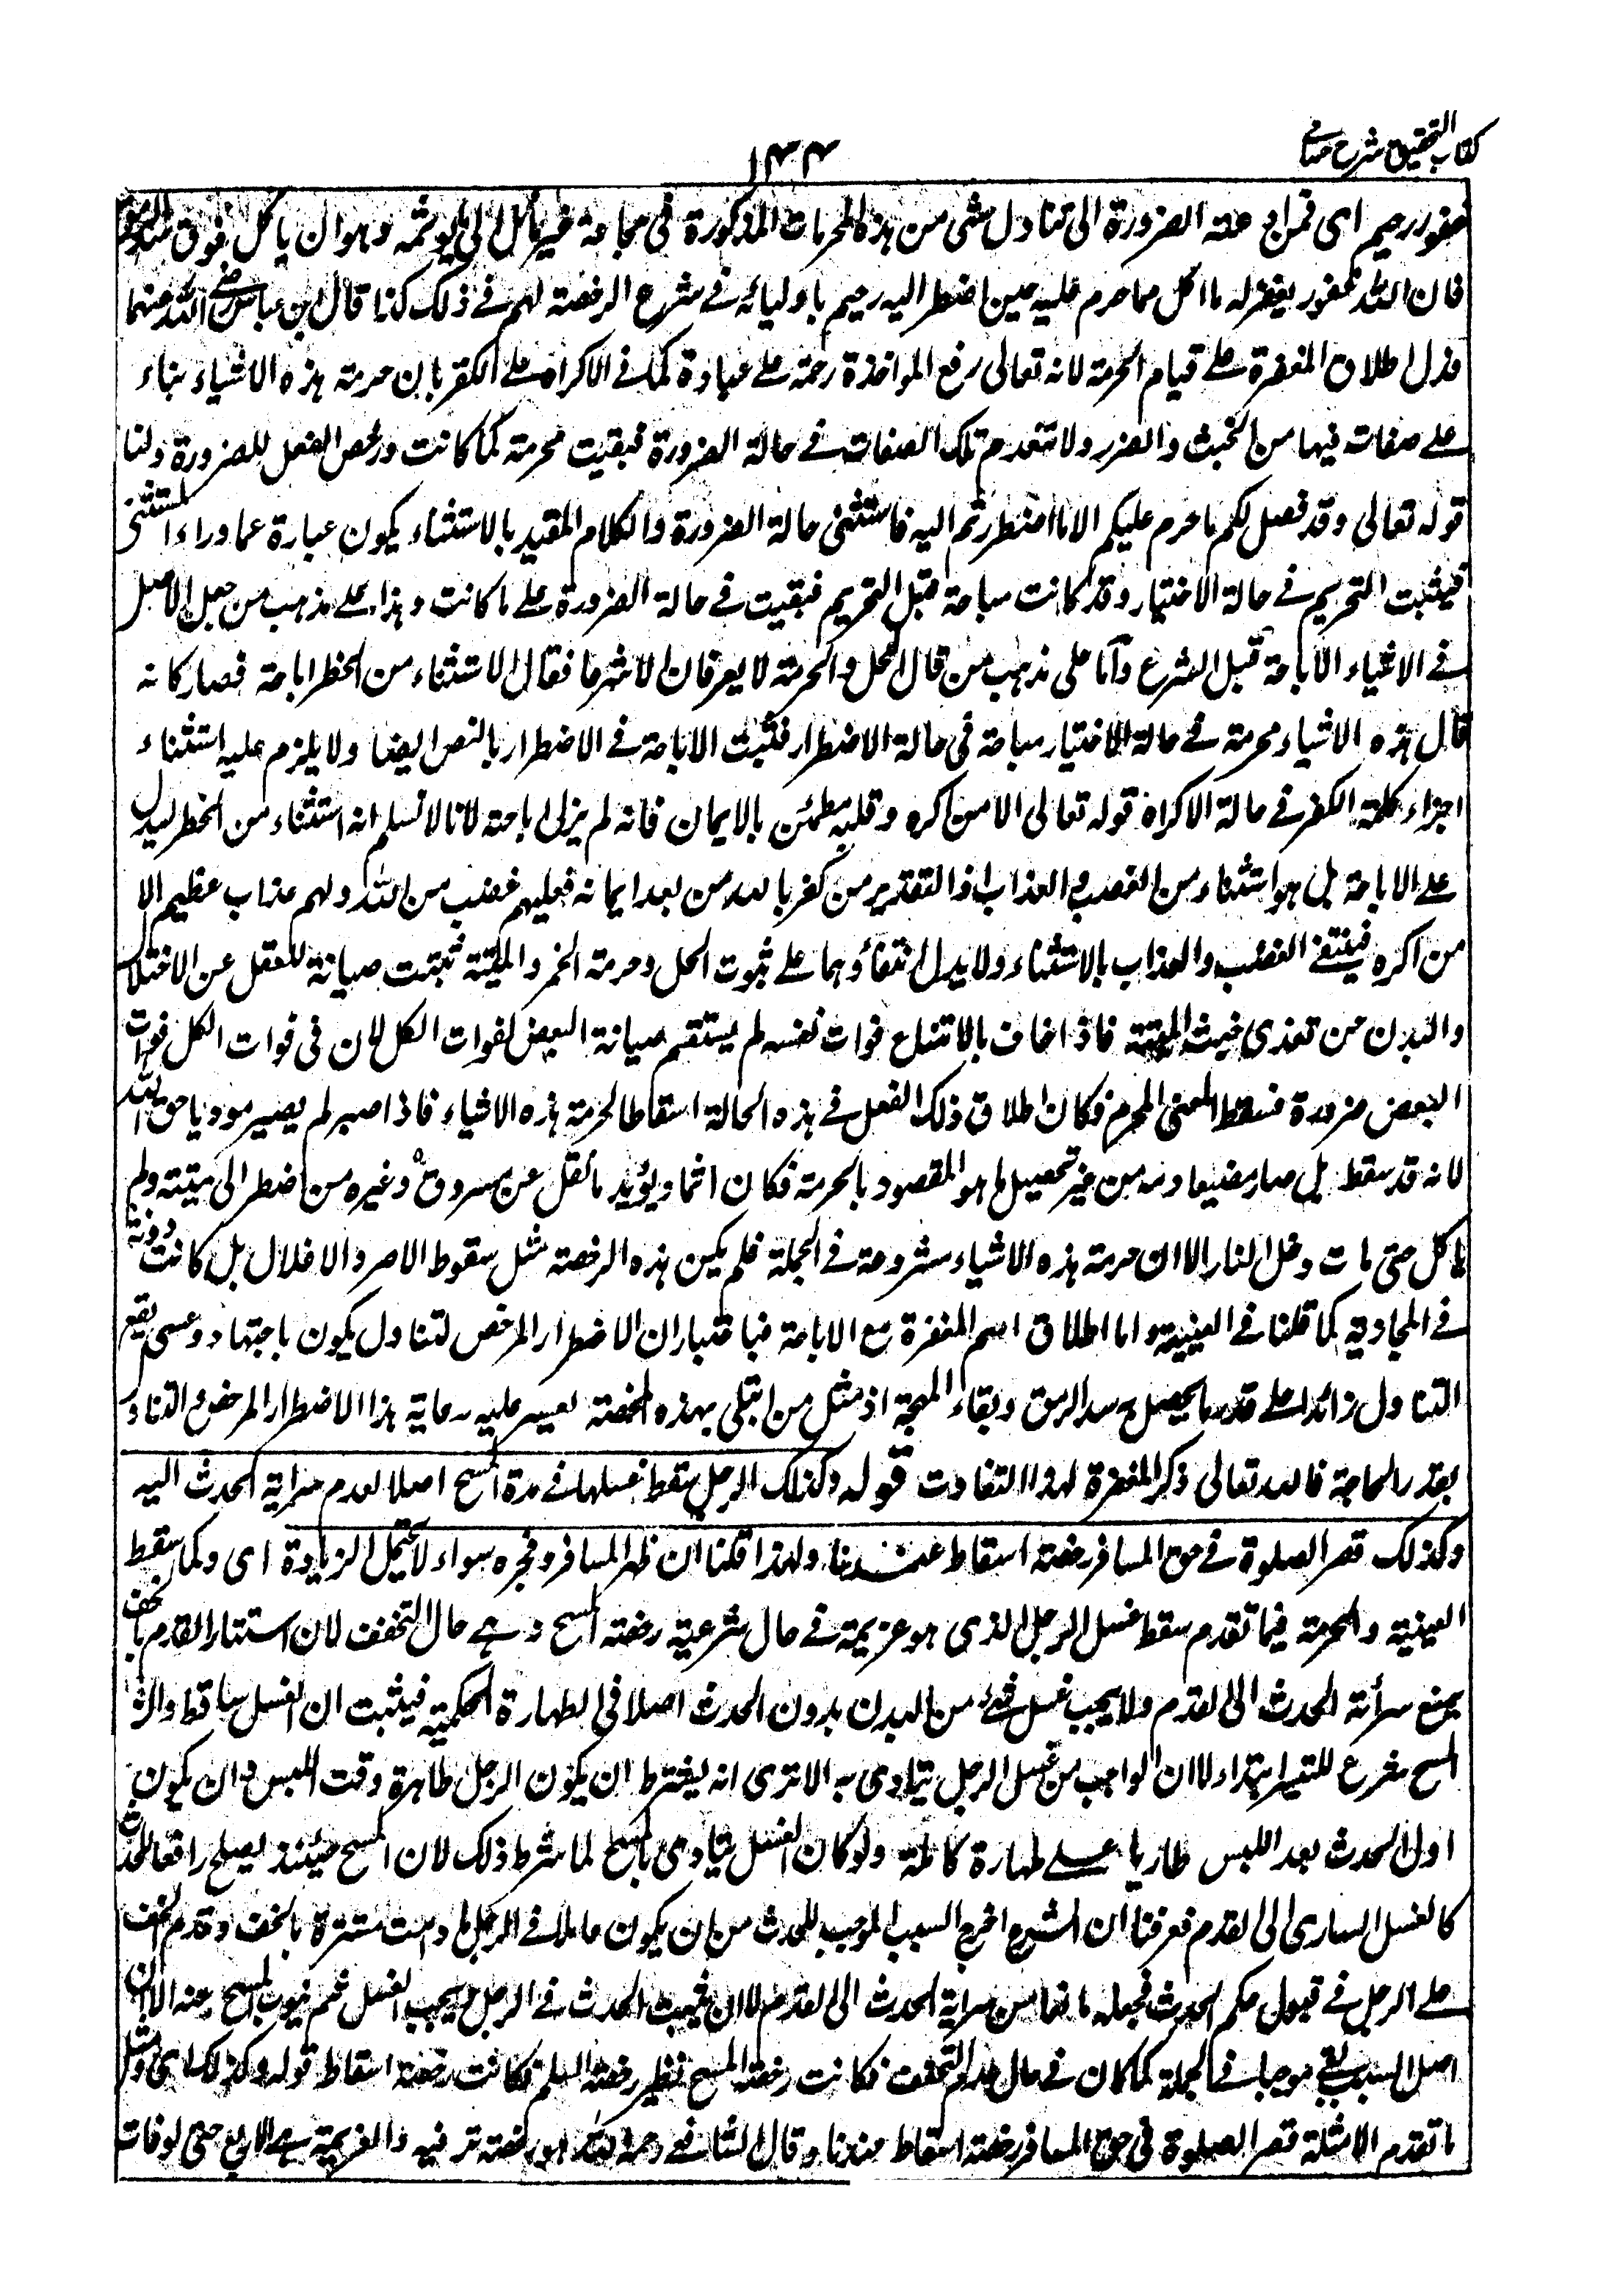 كتاب التحقيق شرح حسامى
١٤٤
غفور رحيم اى فمن دعته الضرورة الى تناول شئ من هذه المحرمات المذكورة فى مجاعة غير مائل الى ما يوثمه وهو ان ياكل فوق
فان الله غفور يغفر له ما اكل مما حرم عليه حين اضطر اليه رحيم باوليائه فے شرع الرخصة لهم فے ذلك كذا قال ابن عباس رضى الله عنهما
فدل اطلاق المغفرة علے قيام الحرمة لانه تعالى رفع المواخذة رحمة علے عباده كما فے الاكراه علے الكفر بان حرمة هذه الاشياء بناء
علے صفات فيها من الخبث والضرر ولا تنعدم تلك الصفات فے حالة الضرورة فبقيت محرمة كما كانت ورخص الفعل للضرورة ولنا
قوله تعالى وقد فصل لكم ما حرم عليكم الا ما اضطررتم اليه فاستثنى حالة الضرورة والكلام المقيد بالاستثناء يكون عبارة عما وراء المستثنى
فيثبت التحريم فے حالة الاختيار وقد كانت مباحة قبل التحريم فبقيت فے حالة الضرورة علے ما كانت وهذا علے مذهب من جعل الاصل
فے الاشياء الاباحة قبل الشرع وآما على مذهب من قال الحل والحرمة لا يعرفان الا شرعا فقال الاستثناء من الحظر اباحة فصار كانه
قال هذه الاشياء محرمة فے حالة الاختيار مباحة فى حالة الاضطرار فثبت الاباحة فے الاضطرار بالنص ايضا ولا يلزم عليه استثناء
اجراء كلمة الكفر فے حالة الاكراه قوله تعالى الا من اكره وقلبه مطمئن بالايمان فانه لم يزل اباحته لانا لا نسلم انه استثناء من الحظر ليدل
علے الاباحة بل هو استثناء من الغضب والعذاب اذ التقدير من كفر بالله من بعد ايمانه فعليهم غضب من الله ولهم عذاب عظيم الا
من اكره فينتفے الغضب والعذاب بالاستثناء ولا يدل انتفاؤهما علے ثبوت الحل وحرمة الخمر والميتة ثبتت صيانة للعقل عن الاختلا
والبدن عن تغذى خبث الميتة فاذا خاف بالامتناع فوات نفسه لم يستقم صيانة البعض لفوات الكل لان فى فوات الكل فوات
البعض ضرورة فسقط المعنى المحرم فكان اطلاق ذلك الفعل فے هذه الحالة اسقاطا لحرمة هذه الاشياء فاذا صبر لم يصير موديا حق الله
لانه قد سقط بل صار مضيعا دمه من غير تحصيل ما هو المقصود بالحرمة فكان اثما ويؤيد ما نقل عن مسروق وغيره من اضطر الى ميتة ولم
ياكل حتى مات دخل النار الا ان حرمة هذه الاشياء مشروعة فے الجملة فلم يكن هذه الرخصة مثل سقوط الاصر والاغلال بل كانت دونه
فے المجازية كما قلنا فے العينية واما اطلاق اسم المغفرة مع الاباحة فباعتبار ان الاضطرار المرخص لتناول يكون باجتهاد وعسى يقع
التناول زائدا علے قدر ما يحصل به سد الرمق وبقاء المهجة اذ مثل من ابتلى بهذه المخمصة يعسر عليه رعاية هذا الاضطرار المرخص التناو
بقدر الحاجة فالله تعالى ذكر المغفرة لهذا التفاوت قوله وكذلك الرجل سقط غسلها فے مدة المسح اصلا لعدم سراية الحدث اليه
وكذلك قصر الصلوة فے حق المسافر رخصة اسقاط عندنا ولهذا قلنا ان ظهر المسافر وفجره سواء لا تحتمل الزيادة اى وكما سقط
العينية والحرمة فيما تقدم سقط غسل الرجل الذى هو عزيمة فے حال شرعية رخصة المسح وهے حال التخفف لان استتار القدم بالخف
يمنع سراية الحدث الى القدم ولا يجب غسل شئ من البدن بدون الحدث اصلا فى الطهارة الحكمية فيثبت ان الغسل ساقط وان
المسح شرع للتيسير ابتداء لا ان الواجب من غسل الرجل يتادى به الا ترى انه يشترط ان يكون الرجل طاهرة وقت اللبس وان يكون
اول الحدث بعد اللبس طاريا علے طهارة كاملة ولو كان الغسل يتادى بالمسح لما شرط ذلك لان المسح حينئذ يصلح رافعا للحدث
كالغسل السارى الى القدم فعرفنا ان الشرع اخرج السبب الموجب للحدث من ان يكون عاملا فے الرجل ما دامت مستترة بالخف وقدم الخف
علے الرجل فے قبول حكم الحدث فجعله مانعا من سراية الحدث الى القدم لا ان يثبت الحدث فے الرجل ويجب الغسل ثم ينوب المسح عنه الا ان
اصل السبب بقے موجبا فے الجملة كما كان فے حال عدم التخفف فكانت رخصة المسح نظير رخصة السلم فكانت رخصة اسقاط قوله وكذلك اى ومثل
ما تقدم الامثلة قصر الصلوة فى حق المسافر رخصة اسقاط عندنا وقال الشافعے رحمه الله هو رخصة ترفيه والعزيمة هے الاربع حتى لوفات